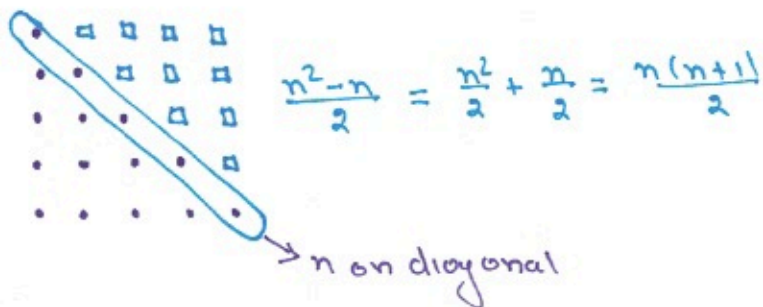 n²-n/2 = n²/2 + n/2 = n(n+1)/2
n on diagonal